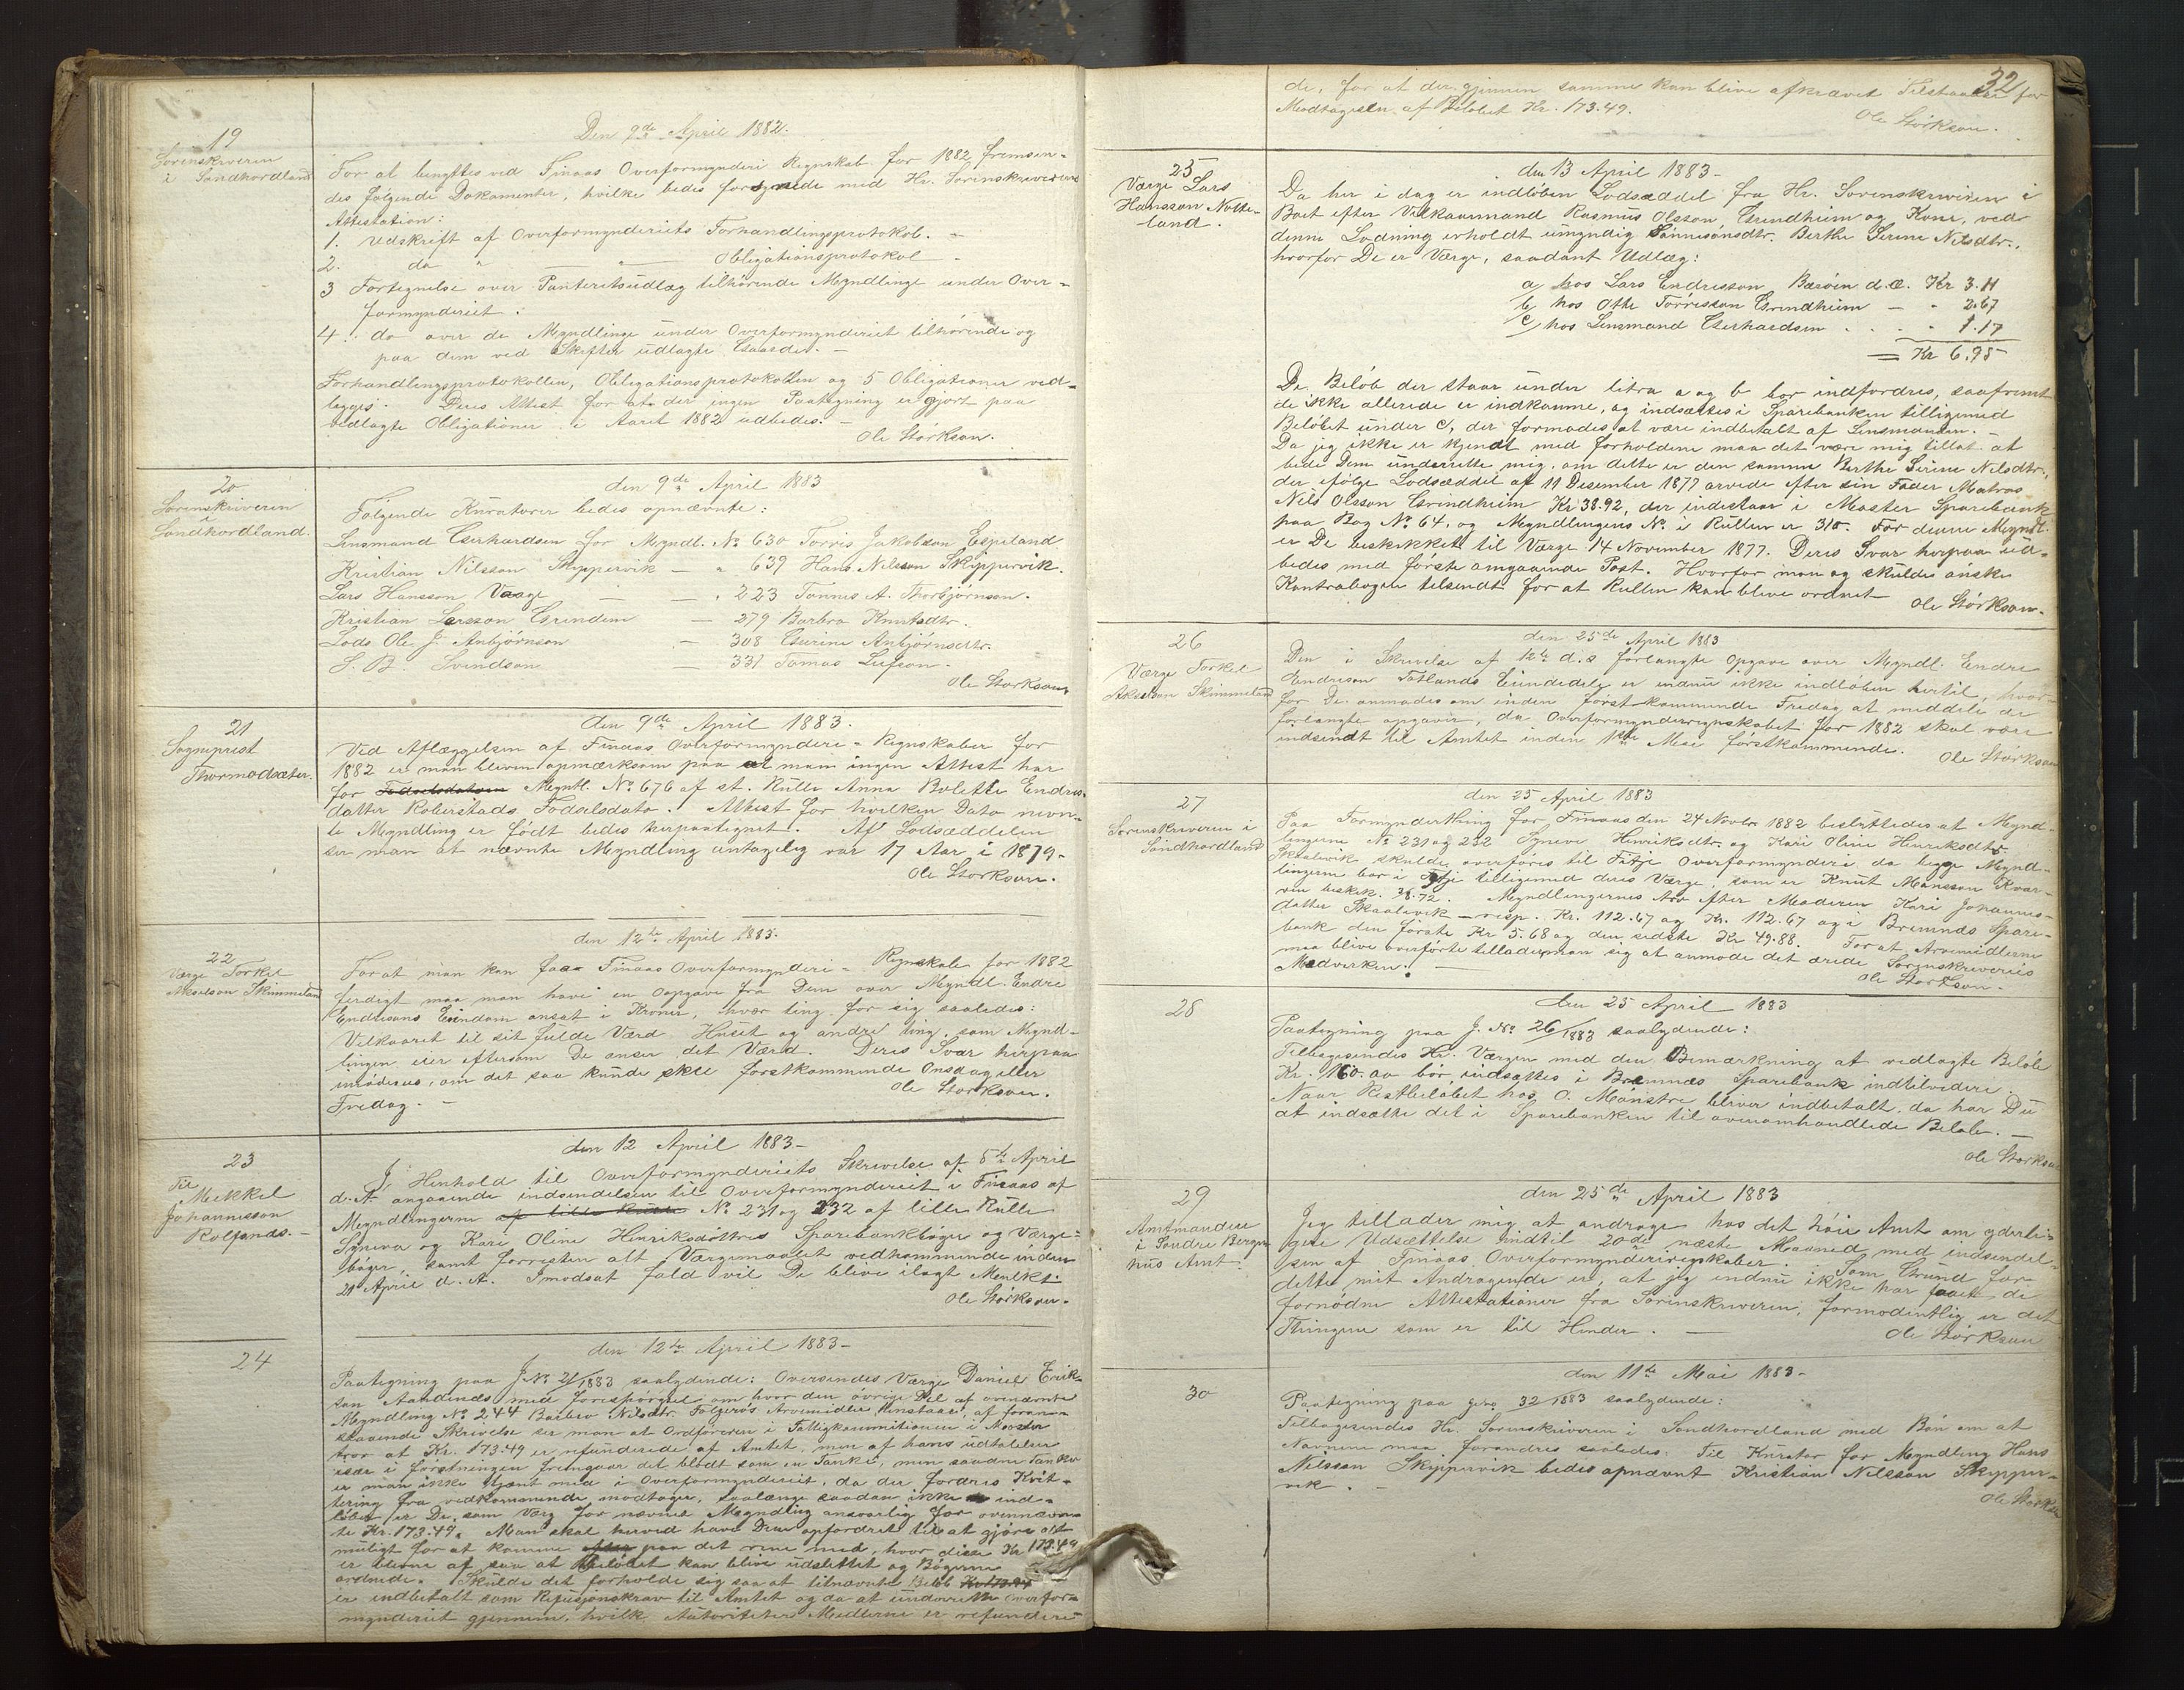 19
Sorenskriveren
i Söndhordland
Den 9de April 1882.
For at benyttes ved Finaas Overformynderi Regnskab for 1882 fremsen-
des følgende Dokumenter, hvilke bedes forsynede med Hr. Sorenskriverens
Attestation:
1. Udskrift af Overformynderiets Forhandlingsprotokol. -
2. do " — " — Obligationsprotokol -
3 Fortegnelse over Panteretsudlæg tilhörende Myndlinge under Over-
formynderiet.
4. do over de Myndlinge under Overformynderiet tilhörende og
paa dem ved Skifter udlagte Gaarde. -
Forhandlingsprotokollen, Obligationsprotokollen og 5 Obligationer ved-
lægges. Deres Attest for at der ingen Paategning er gjort paa
vedlagte Obligationer i Aaret 1882 udbedes. -
Ole Störkson.
20
Sorenskriveren
i
Söndhordland.
den 9de April 1883
Følgende Kuratorer bedes opnævnte:
Lensmand Gerhardsen for Myndl. No 630 Torris Jakobson Espeland
Kristian Nilsson Skippervik — " 639 Hans Nilsson Skippervik.
Lars Hansson Vaage — — " 223 Tönnes A. Thorbjörnson.
Kristian Larsson Grindeim — 279 Barbro Knutsdtr.
Lods Ole J. Anbjörnson — 308 Gurine Anbjörnsdtr.
S. B. Svendson — 331 Tomas Leifson.
Ole Störkson
21
Sogneprest
Thormodsæter.
den 9de April 1883.
Ved Aflæggelsen af Finaas Overformynderi-Regnskaber for
1882 er man bleven opmærksom paa at man ingen Attest har
for Fødselsdatoen Myndl. No 676 af st. Rulle Anna Bolette Endres-
datter Roberstads Födselsdato. Attest for hvilken Dato nævn-
te Myndling er født bedes herpaategnet. Af Lodsæddelen
ser man at nævnte Myndling antagelig var 17 Aar i 1879.
Ole Störkson.
22
Værge Torkel
Akselson Skimmeland
den 12te April 1883.
For at man kan faa Finaas Overformynderi-Regnskab for 1882
ferdigt maa man have en Opgave fra Dem over Myndl. Endre
Endresons Eiendom ansat i Kroner, hvær ting for sig saaledes:
Vilkaaret til sit fulde Værd Huset og andre ting, som Mynd-
lingen eier eftersom De anser det Værd. Deres Svar herpaa
imødesees, om det saa kunde skee førstkommende Onsdag eller
Fredag. -
Ole Störkson.
23
Til
Mikkel
Johannesson
Rolfsnæs. -
den 12 April 1883 -
I Henhold til Overformynderiets Skrivelse af 5te April
d. A. angaaende indsendelsen til Overformynderiet i Finaas af
Myndlingerne af lille Rulle No 231 og 232 af lille Rulle
Syneva og Kari Oline Henriksdøttres Sparebankbøger og Værge-
bøger, samt forresten alt Værgemaalet vedkommende inden
21 April d. A. I modsat fald vil De blive ilagt Menlkt.
Ole Störkson.
24
den 12te April 1883 -
Paategning paa J. No 21/1883 saalydende: Oversendes Værge Daniel Erik-
son Aadnenæs med forespørgsel om hvor den øvrige Del af ovennævnte
Myndling No 244 Barbro Nilsdtr. Folgerøs Arvemidler henstaar, af foran-
staaende Skrivelse ser man at Ordføreren i Fattigkommisionen i Moster
tror at Kr. 173.49 er refunderede af Amtet, men af hans udtalelser
især i førstningen fremgaar det blodt som en Tanke, men saadan Tanke
er man ikke tjent med i Overformynderiet, da der fordres Kvit-
tering fra vedkommende modtager, saalænge saadan ikke ind-
løber er De, som Værge for nævnte Myndling ansvarlig for ovennævn-
te Kr. 173.49. Man skal herved have Dem opfordret til at gjøre alt
muligt for at komme efter paa det rene med, hvor disse Kr 173.49
er blevne af saa at Beløbet kan blive udslettet og Bøgerne
ordnede. Skulde det forholde sig saa at titnævnte Beløb Kr 173.94
er indbetalt som Refusjonskrav til Amtet og da at underrette Overfor-
mynderiet gjennem hvilke Autoriteter Midlerne er refundere
32
de, for at der gjennem samme kan blive afkrævet Tilstaaelse for
Modtagelsen af Beløbet Kr. 173.49.
Ole Störkson.
25
Værge Lars
Hansson Notte-
land.
den 13 April 1883 -
Da her i dag er indløben Lodsæddel fra Hr. Sorenskriveren i
Boet efter Vilkaarmand Rasmus Olsson Grindheim og Kone, ved
denne Lodning erholdt umyndig Sønnesønsdtr. Berthe Serine Nilsdtr.,
hvorfor De er Værge, saadant Udlæg:
a, hos Lars Endresson Bærøen d. æ. Kr 3.11
b, hos Otte Torrisson Grindheim — " 2.67
c, hos Lensmand Gerhardsen . . " 1.17
= Kr 6.95
De Beløb der staar under litra a og b bør indfordres, saafremt
de ikke allerede er indkomne, og indsættes i Sparebanken tilligemed
Beløbet under c, der formodes at være indbetalt af Lensmanden. -
Da jeg ikke er kjendt med forholdene maa det være mig tillat at
bede Dem underrette mig, om dette er den samme Berthe Serine Nilsdtr.,
der ifølge Lodsæddel af 11 Desember 1877 arvede efter sin Fader Matros
Nils Olsson Grindheim Kr 38.92, der indestaar i Moster Sparebank
paa Bog No 64, og Myndlingens No i Rullen er 310. For denne Myndl.
er De beskikket til Værge 14 November 1877. Deres Svar herpaa ud-
bedes med første omgaaende Post. Hvorfor man og skulde ønske
Kontrabogen tilsendt for at Rullen kan blive ordnet
Ole Störkson.
26
Værge Torkel
Akselson Skimmeland
den 25de April 1883
Den i Skrivelse af 12te d.s forlangte Opgave over Myndl. Endre
Endreson Totlands Eiendele er endnu ikke indløben hertil, hvor-
for De anmodes om inden først kommende Fredag at meddele de
forlangte opgaver, da Overformynderregnskabet for 1882 skal være
indsendt til Amtet inden 1ste Mai førstkommende.
Ole Störkson
27
Sorenskriveren i
Söndhordland
den 25 April 1883
Paa Formynderthing for Finaas den 24 Novbr. 1882 besluttedes at Mynd-
lingerne No 231 og 232 Syneve Henriksdtr. og Kari Oline Henriksdtr.
Skaalevik skulde overføres til Fitje Overformynderi, da begge Mynd-
lingerne bor i Fitje tilligemed deres Værge, som er Knut Mónsson Kvar-
ven beskik. Myndlingernes Arv efter Moderen Kari Johannes-
datter Skaalevik — resp. Kr. 112.67 og Kr. 112.67 og i Bremnes Spare-
bank den første Kr 5.68 og den sidste Kr 49.88. For at Arvemidlerne
maa blive overførte tillader man sig at anmode det ærede Sorenskriveries
Medvirken. -
Ole Störkson.
28
den 25 April 1883
Paategning paa J. No 26/1883 saalydende:
Tilbagesendes Hr. Værgen med den Bemærkning at vedlagte Beløb
Kr. 160.00 bør indsættes i Bremnæs Sparebank indtilvidere.
Naar Restbeløbet hos O. Mónstre bliver indbetalt, da har Du
at indsætte det i Sparebanken til ovenomhandlede Beløb. -
Ole Störkson
29
Amtmanden
i Söndre Bergen-
hus Amt.
den 25de April 1883
Jeg tillader mig at andrage hos det høie Amt om yderli-
gere Udsættelse indtil 20de næste Maaned med indsendel-
sen af Finaas Overformynderiregnskaber. Som Grund for
dette mit Andragende er, at jeg endnu ikke har faaet de
fornødne Attestationer fra Sorenskriveren, formodentlig er det
Thingene som er til Hinder. -
Ole Störkson
30
den 11te Mai 1883 -
Paategning paa 32/1883 saalydende:
Tilbagesendes Hr. Sorenskriveren i Söndhordland med Bön om at
Navnene maa forandres saaledes: Til Kurator for Myndling Hans
Nilsson Skippervik bedes opnævnt Kristian Nilsson Skipper-
vik. -
Ole Störkson